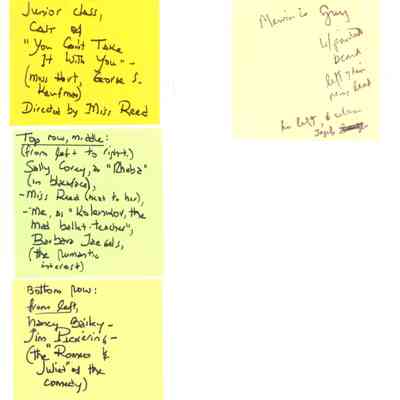 Junior class,
Cast of
"You Can't Take
It With You" -
(Moss Hart, George S.
Kaufman)
Directed by Miss Reed
Top row, middle:
(from left to right.)
Sally Corey, as "Rheba"
(in blackface),
- Miss Reed (next to her),
- Me, as "Kolenkov, the
mad ballet-teacher",
Barbara Jaegals,
(the romantic
interest)
Bottom row:
from left,
Nancy Bailey -
Jim Pickering -
(the "Romeo &
Juliet" of the
comedy)
Man in Gray
w/painted
beard
left